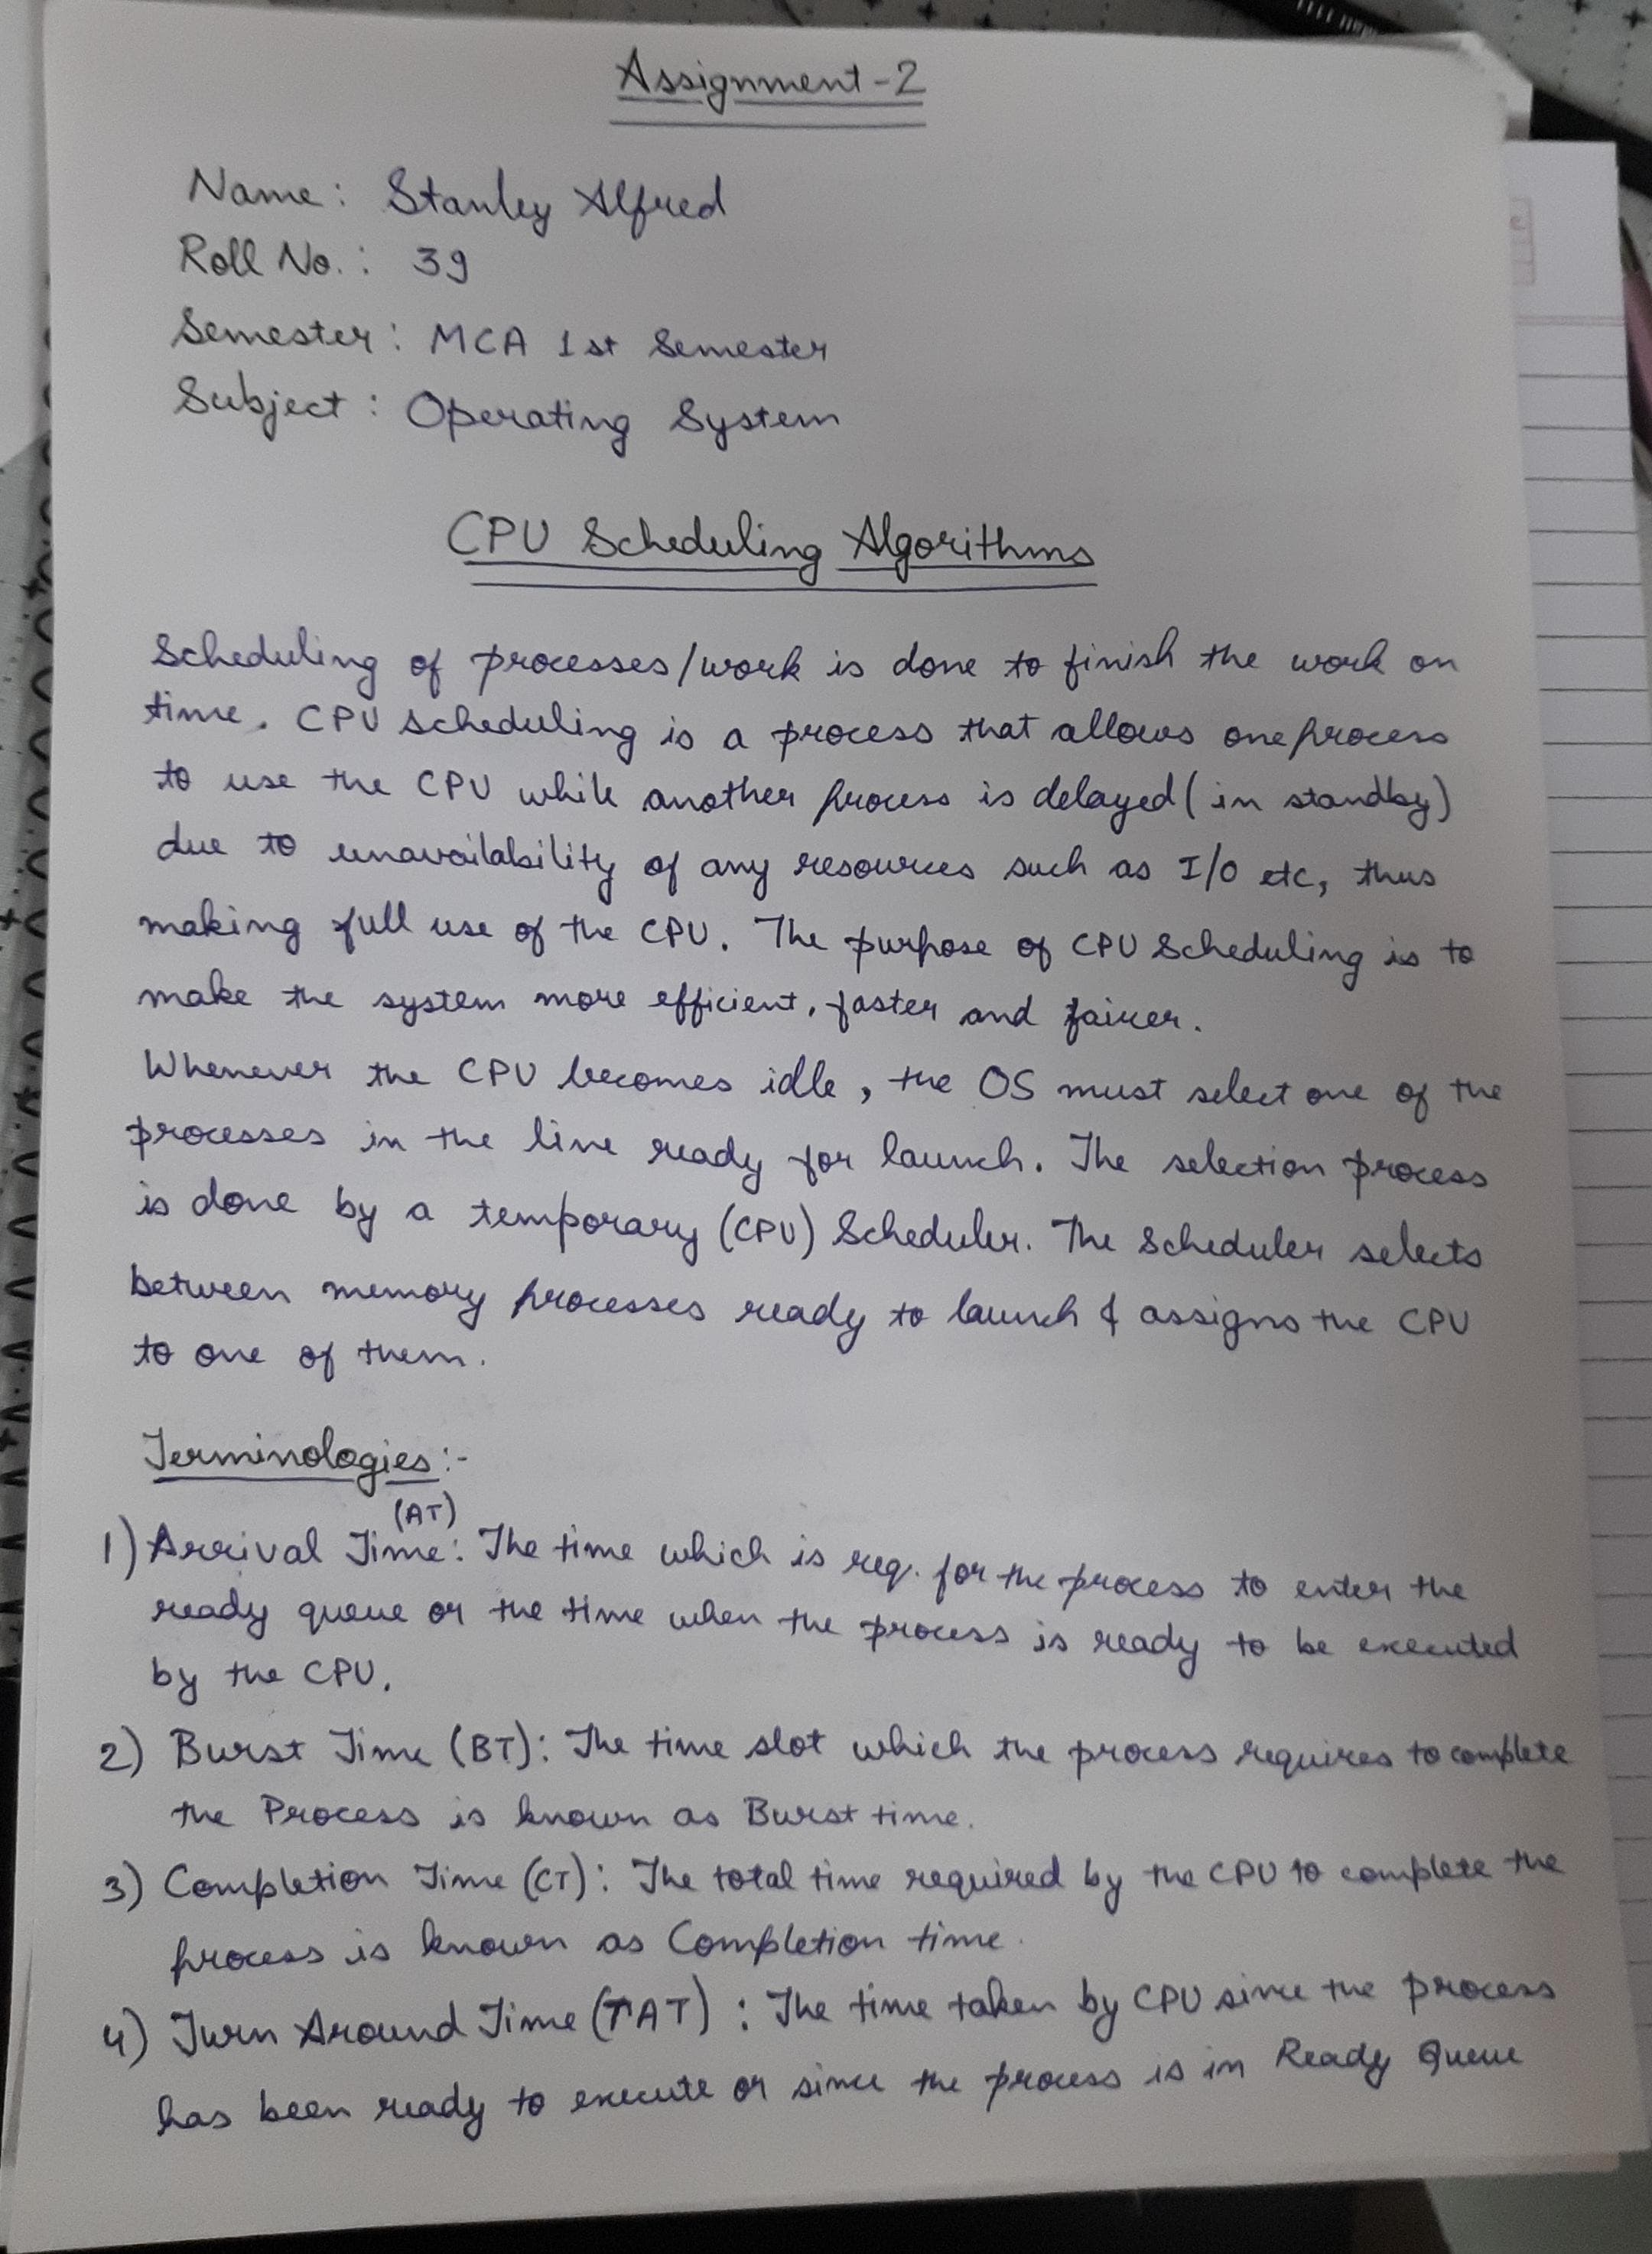 Assignment-2
Name: Stanley Alfred
Roll No.: 39
Semester: MCA 1st Semester
Subject: Operating System
CPU Scheduling Algorithms
Scheduling of processes/work is done to finish the work on
time. CPU scheduling is a process that allows one process
to use the CPU while another process is delayed (in standby)
due to unavailability of any resources such as I/O etc, thus
making full use of the CPU. The purpose of CPU Scheduling is to
make the system more efficient, faster and fairer.
Whenever the CPU becomes idle, the OS must select one of the
processes in the line ready for launch. The selection process
is done by a temporary (CPU) Scheduler. The Scheduler selects
between memory processes ready to launch & assigns the CPU
to one of them.
Terminologies:-
(AT)
1) Arrival Time: The time which is req. for the process to enter the
ready queue or the time when the process is ready to be executed
by the CPU.
2) Burst Time (BT): The time slot which the process requires to complete
the Process is known as Burst time.
3) Completion Time (CT): The total time required by the CPU to complete the
process is known as Completion time.
4) Turn Around Time (TAT): The time taken by CPU since the process
has been ready to execute or since the process is in Ready Queue